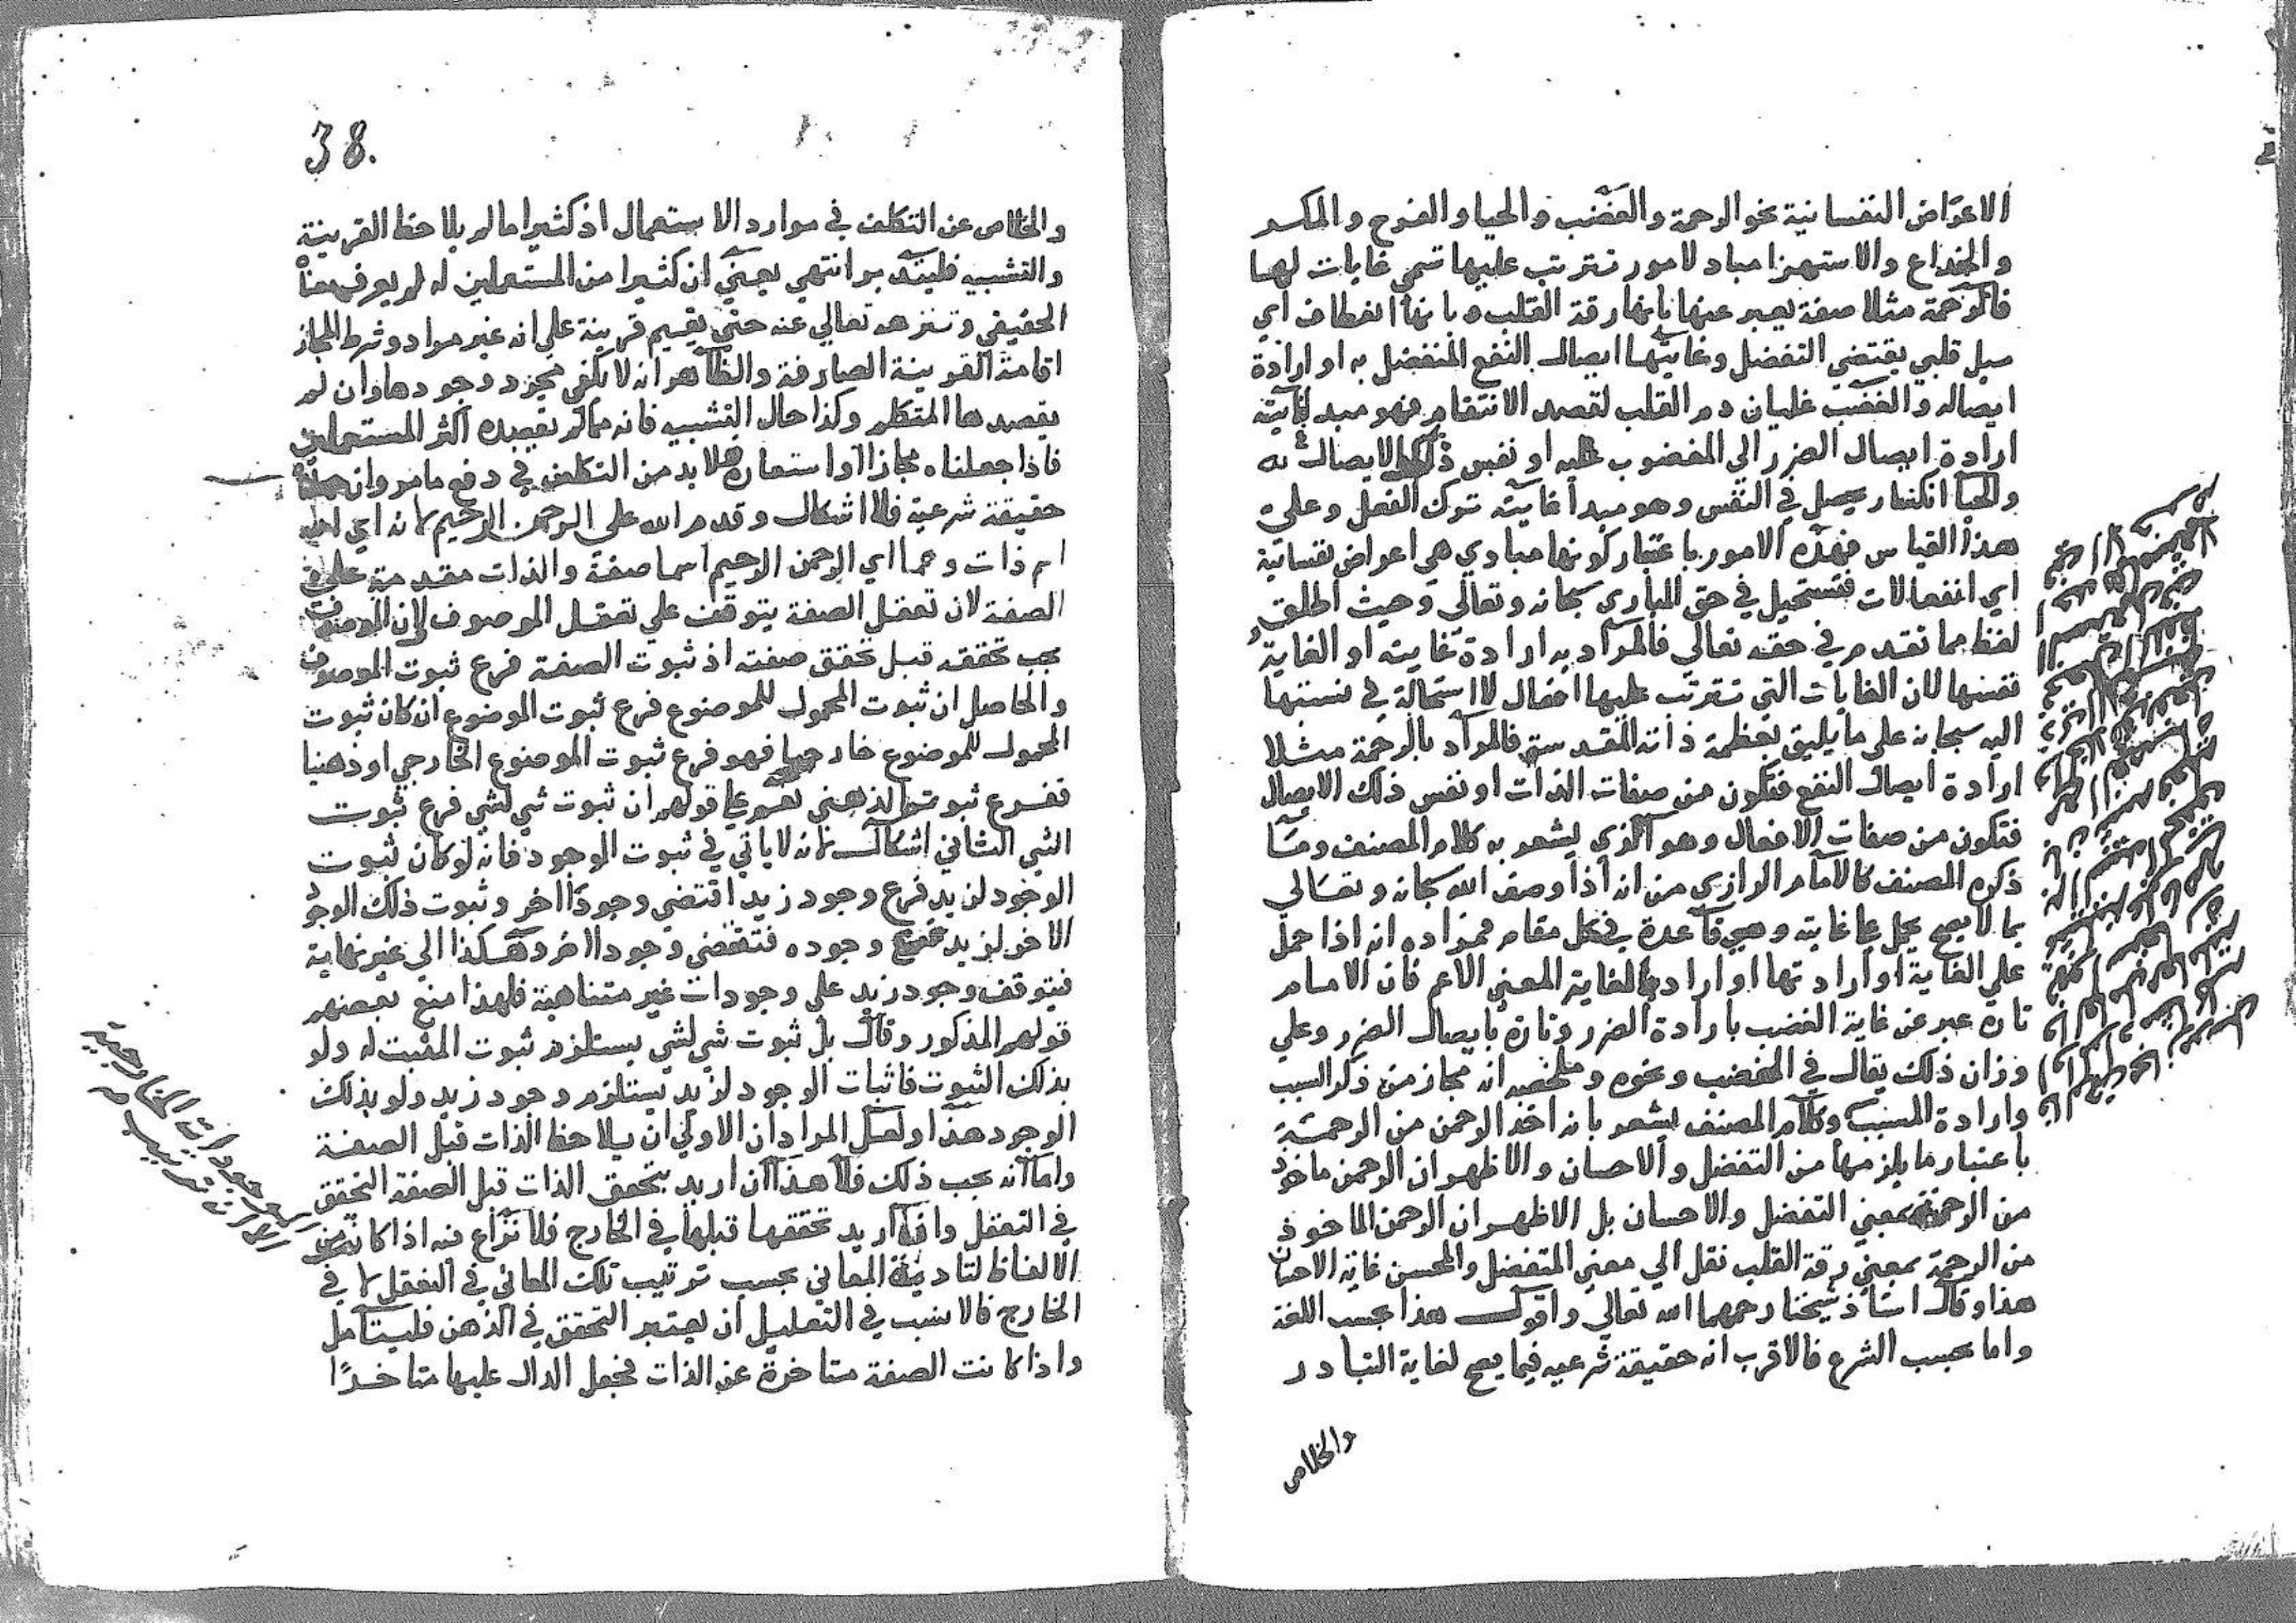 الاعراض النفسانية نحو الرحمة والغضب والحيا والفرح والمكر
والخداع والاستهزا مباد لامور تترتب عليها تسمي غايات لها
فالرحمة مثلا صفة يعبر عنها بانها رقة القلب وبانها انعطاف اي
ميل قلبي يقتضي التفضل وغايتها ايصال النفع المنفضل به او ارادة
ايصاله والغضب غليان دم القلب لقصد الانتقام فهو مبد لغايته
ارادة ايصال الضرر الي المغضوب عليه او نفس ذلك الايصال له
والحيا انكسار يحصل في النفس وهو مبدا غايته ترك الفعل وعلي
هذا القياس فهذه الامور باعتبار كونها مبادي هي اعراض نفسانية
اي انفعالات فتستحيل في حق الباري سبحانه وتعالي وحيث اطلق
لفظ مما تقدم في حقه تعالي فالمراد به ارادة غايته او الغاية
نفسها لان الغايات التي تترتب عليها افعال لا استحالة في نسبتها
اليه سبحانه علي ما يليق بعظمة ذاته المقدسة فالمراد بالرحمة مثلا
ارادة ايصال النفع فتكون من صفات الذات او نفس ذلك الايصال
فتكون من صفات الافعال وهو الذي يشعر به كلام المصنف وما
ذكره المصنف كالامام الرازي من انه اذا وصف الله سبحانه وتعالي
بما لا يصح يحمل علي غايته وهي قاعدة في كل مقام فمراده انه اذا حمل
علي الغاية او ارادتها او اراد بالغاية المعني الاعم فان الامام
تارة عبر عن غاية الغضب بارادة الضرر وتارة بايصال الضرر وعلي
وزان ذلك يقال في الغضب ونحوه وملخصه انه مجاز من ذكر السبب
وارادة المسبب وكلام المصنف يشعر بانه اخذ الرحمن من الرحمة
باعتبار ما يلزمها من التفضل والاحسان والاظهر ان الرحمن ماخوذ
من الرحمة بمعني التفضل والاحسان بل الاظهر ان الرحمن الماخوذ
من الرحمة بمعني رقة القلب نقل الي معني المتفضل والمحسن غاية الاحسان
هذا وقال استاذ شيخنا رحمهما الله تعالي واقول هذا بحسب اللغة
واما بحسب الشرع فالاقرب انه حقيقة شرعيه فيما يصح لغاية التبادر
والخلاص
38.
والخلاص عن التكلف في موارد الاستعمال اذ كثيرا ما لم يلاحظ القرينة
والتشبيه فليتدبر انتهي يعني ان كثيرا من المستعملين له لم يعرف معناه
الحقيقي وتنزهه تعالي عنه حتي يقيم قرينة علي انه غير مراد وشرط المجاز
اقامة القرينة الصارفة والظاهر انه لا يكفي مجرد وجودها وان لم
يقصدها المتكلم وكذا حال التشبيه فانه مما لم يقصده اكثر المستعملين
فاذا جعلناه مجازا او استعارة فلا بد من التكلف في دفع ما مر وان جعلناه
حقيقة شرعية فلا اشكال وقدم الله علي الرحمن الرحيم لانه اي الله
اسم ذات وهما اي الرحمن الرحيم اسما صفة والذات مقدمة علي
الصفة لان تعقل الصفة يتوقف علي تعقل الموصوف لان الموصوف
يجب تحققه قبل تحقق صفته اذ ثبوت الصفة فرع ثبوت الموصوف
والحاصل ان ثبوت المحمول للموضوع فرع ثبوت الموضوع ان كان ثبوت
المحمول للموضوع خارجيا فهو فرع ثبوت الموضوع الخارجي او ذهنيا
ففرع ثبوته الذهني نعم علي قولهم ان ثبوت شي لشي فرع ثبوت
الشي الثاني اشكال لانه لا ياتي في ثبوت الوجود فانه لو كان ثبوت
الوجود لزيد فرع وجود زيد اقتضي وجودا اخر وثبوت ذلك الوجود
الاخر لزيد فرع وجوده فتقتضي وجودا اخر وهكذا الي غير نهاية
فيتوقف وجود زيد علي وجودات غير متناهية فلهذا منع بعضهم
قولهم المذكور وقال بل ثبوت شي لشي يستلزم ثبوت المثبت له ولو
بذلك الثبوت فاثبات الوجود لزيد يستلزم وجود زيد ولو بذلك
الوجود هذا ولعل المراد ان الاولي ان يلاحظ الذات قبل الصفة
واما انه يجب ذلك فلا هذا ان اريد بتحقق الذات قبل الصفة التحقق
في التعقل وان اريد تحققها قبلها في الخارج فلا نزاع فيه اذا كان
الالفاظ لتادية المعاني بحسب ترتيب تلك المعاني في التعقل لا في
الخارج فالانسب في التعليل ان يعتبر التحقق في الذهن فليتامل
واذا كانت الصفة متاخرة عن الذات فجعل الدال عليها متاخرا